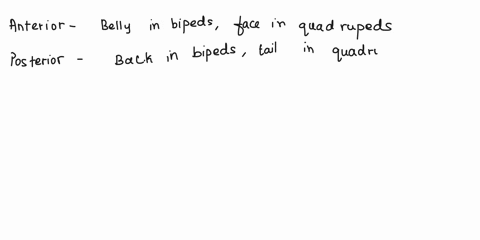 Anterior - Belly in bipeds, face in quadrupeds
Posterior - Back in bipeds, tail in quadru